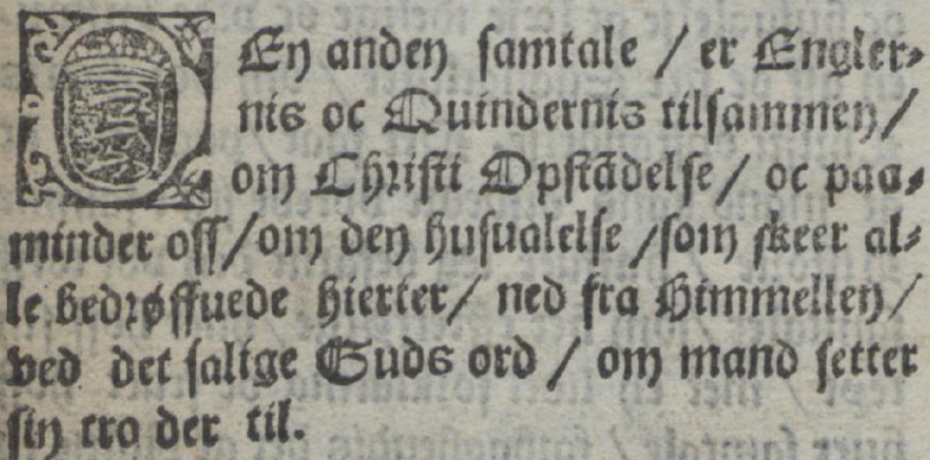 DEn anden samtale / er Engler⸗
nis oc Quindernis tilsammen /
om Christi Opstādelse / oc paa⸗
minder oss / om den husualelse / som skeer al⸗
le bedrøffuede hierter / ned fra Himmellen /
ved det salige Guds ord / om mand setter
sin tro der til.